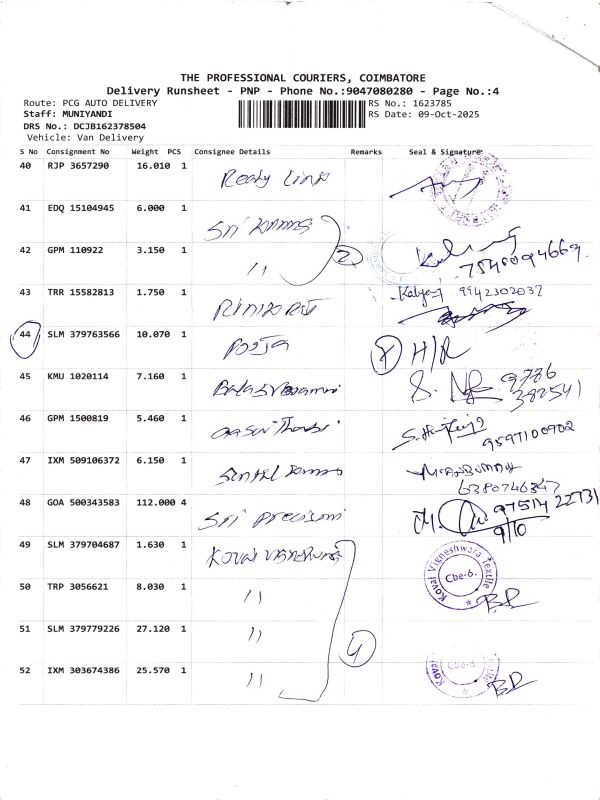 THE PROFESSIONAL COURIERS, COIMBATORE
Delivery Runsheet - PNP - Phone No.:9047080280 - Page No.:4
Route: PCG AUTO DELIVERY RS No.: 1623785
Staff: MUNIYANDI RS Date: 09-Oct-2025
DRS No.: DCJB162378504
Vehicle: Van Delivery
S No Consignment No Weight PCS Consignee Details Remarks Seal & Signature
40 RJP 3657290 16.010 1 Ready Link
41 EDQ 15104945 6.000 1 Sri
2
42 GPM 110922 3.150 1 "
43 TRR 15582813 1.750 1 9942302037
44 SLM 379763566 10.070 1 Pooja H/R
45 KMU 1020114 7.160 1 9786
382541
46 GPM 1500819 5.460 1
9597100902
47 IXM 509106372 6.150 1
6380746347
48 GOA 500343583 112.000 4 Sri Precision 97514 22731
9/10
49 SLM 379704687 1.630 1 Kovai Vigneshwara Kovai Vigneshwara Textile Cbe-6.
50 TRP 3056621 8.030 1 "
51 SLM 379779226 27.120 1 "
4
52 IXM 303674386 25.570 1 " Kovai Textile Cbe-6